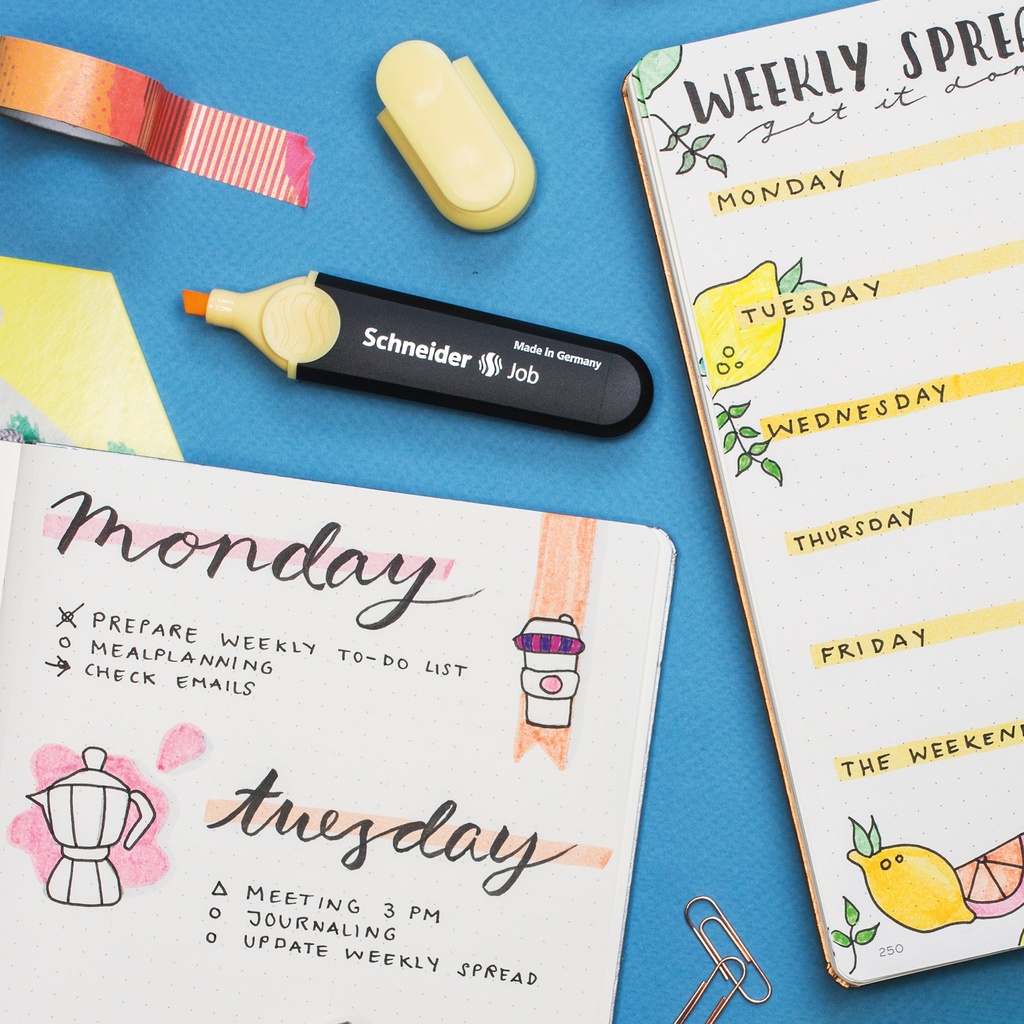 WEEKLY
get it
MONDAY
TUESDAY
WEDNESDAY
THURSDAY
FRIDAY
THE WEEKEN
250
Schneider Job
Made in Germany
monday
PREPARE WEEKLY TO-DO LIST
MEALPLANNING
CHECK EMAILS
tuesday
MEETING 3 PM
JOURNALING
UPDATE WEEKLY SPREAD